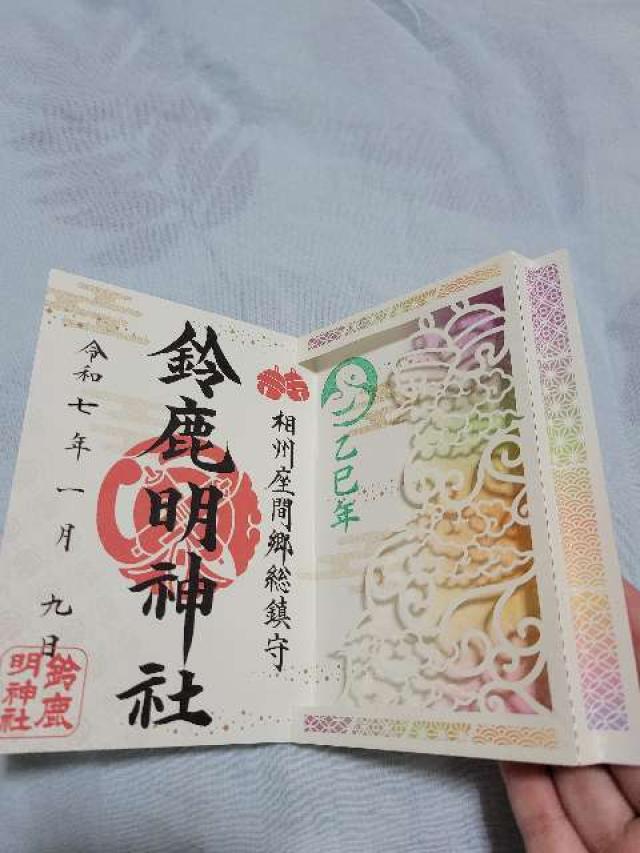 乙巳年
相州座間郷総鎮守
鈴鹿明神社
令和七年一月九日
鈴鹿
明神社